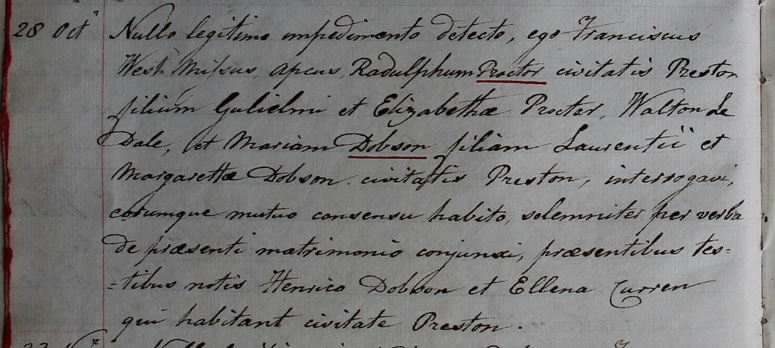 28 Octr Nullo legitimo impedimento detecto, ego Franciscus
West Missus Apcus, Radulphum Proctor civitatis Preston
filium Gulielmi et Elizabethæ Proctor, Walton le
Dale, et Mariam Dobson filiam Laurentii et
Margarettæ Dobson civitatis Preston, interrogavi,
eorumque mutuo consensu habito, solemniter per verba
de præsenti matrimonio conjunxi, præsentibus tes=
=tibus notis Henrico Dobson et Ellena Curren
qui habitant civitate Preston.